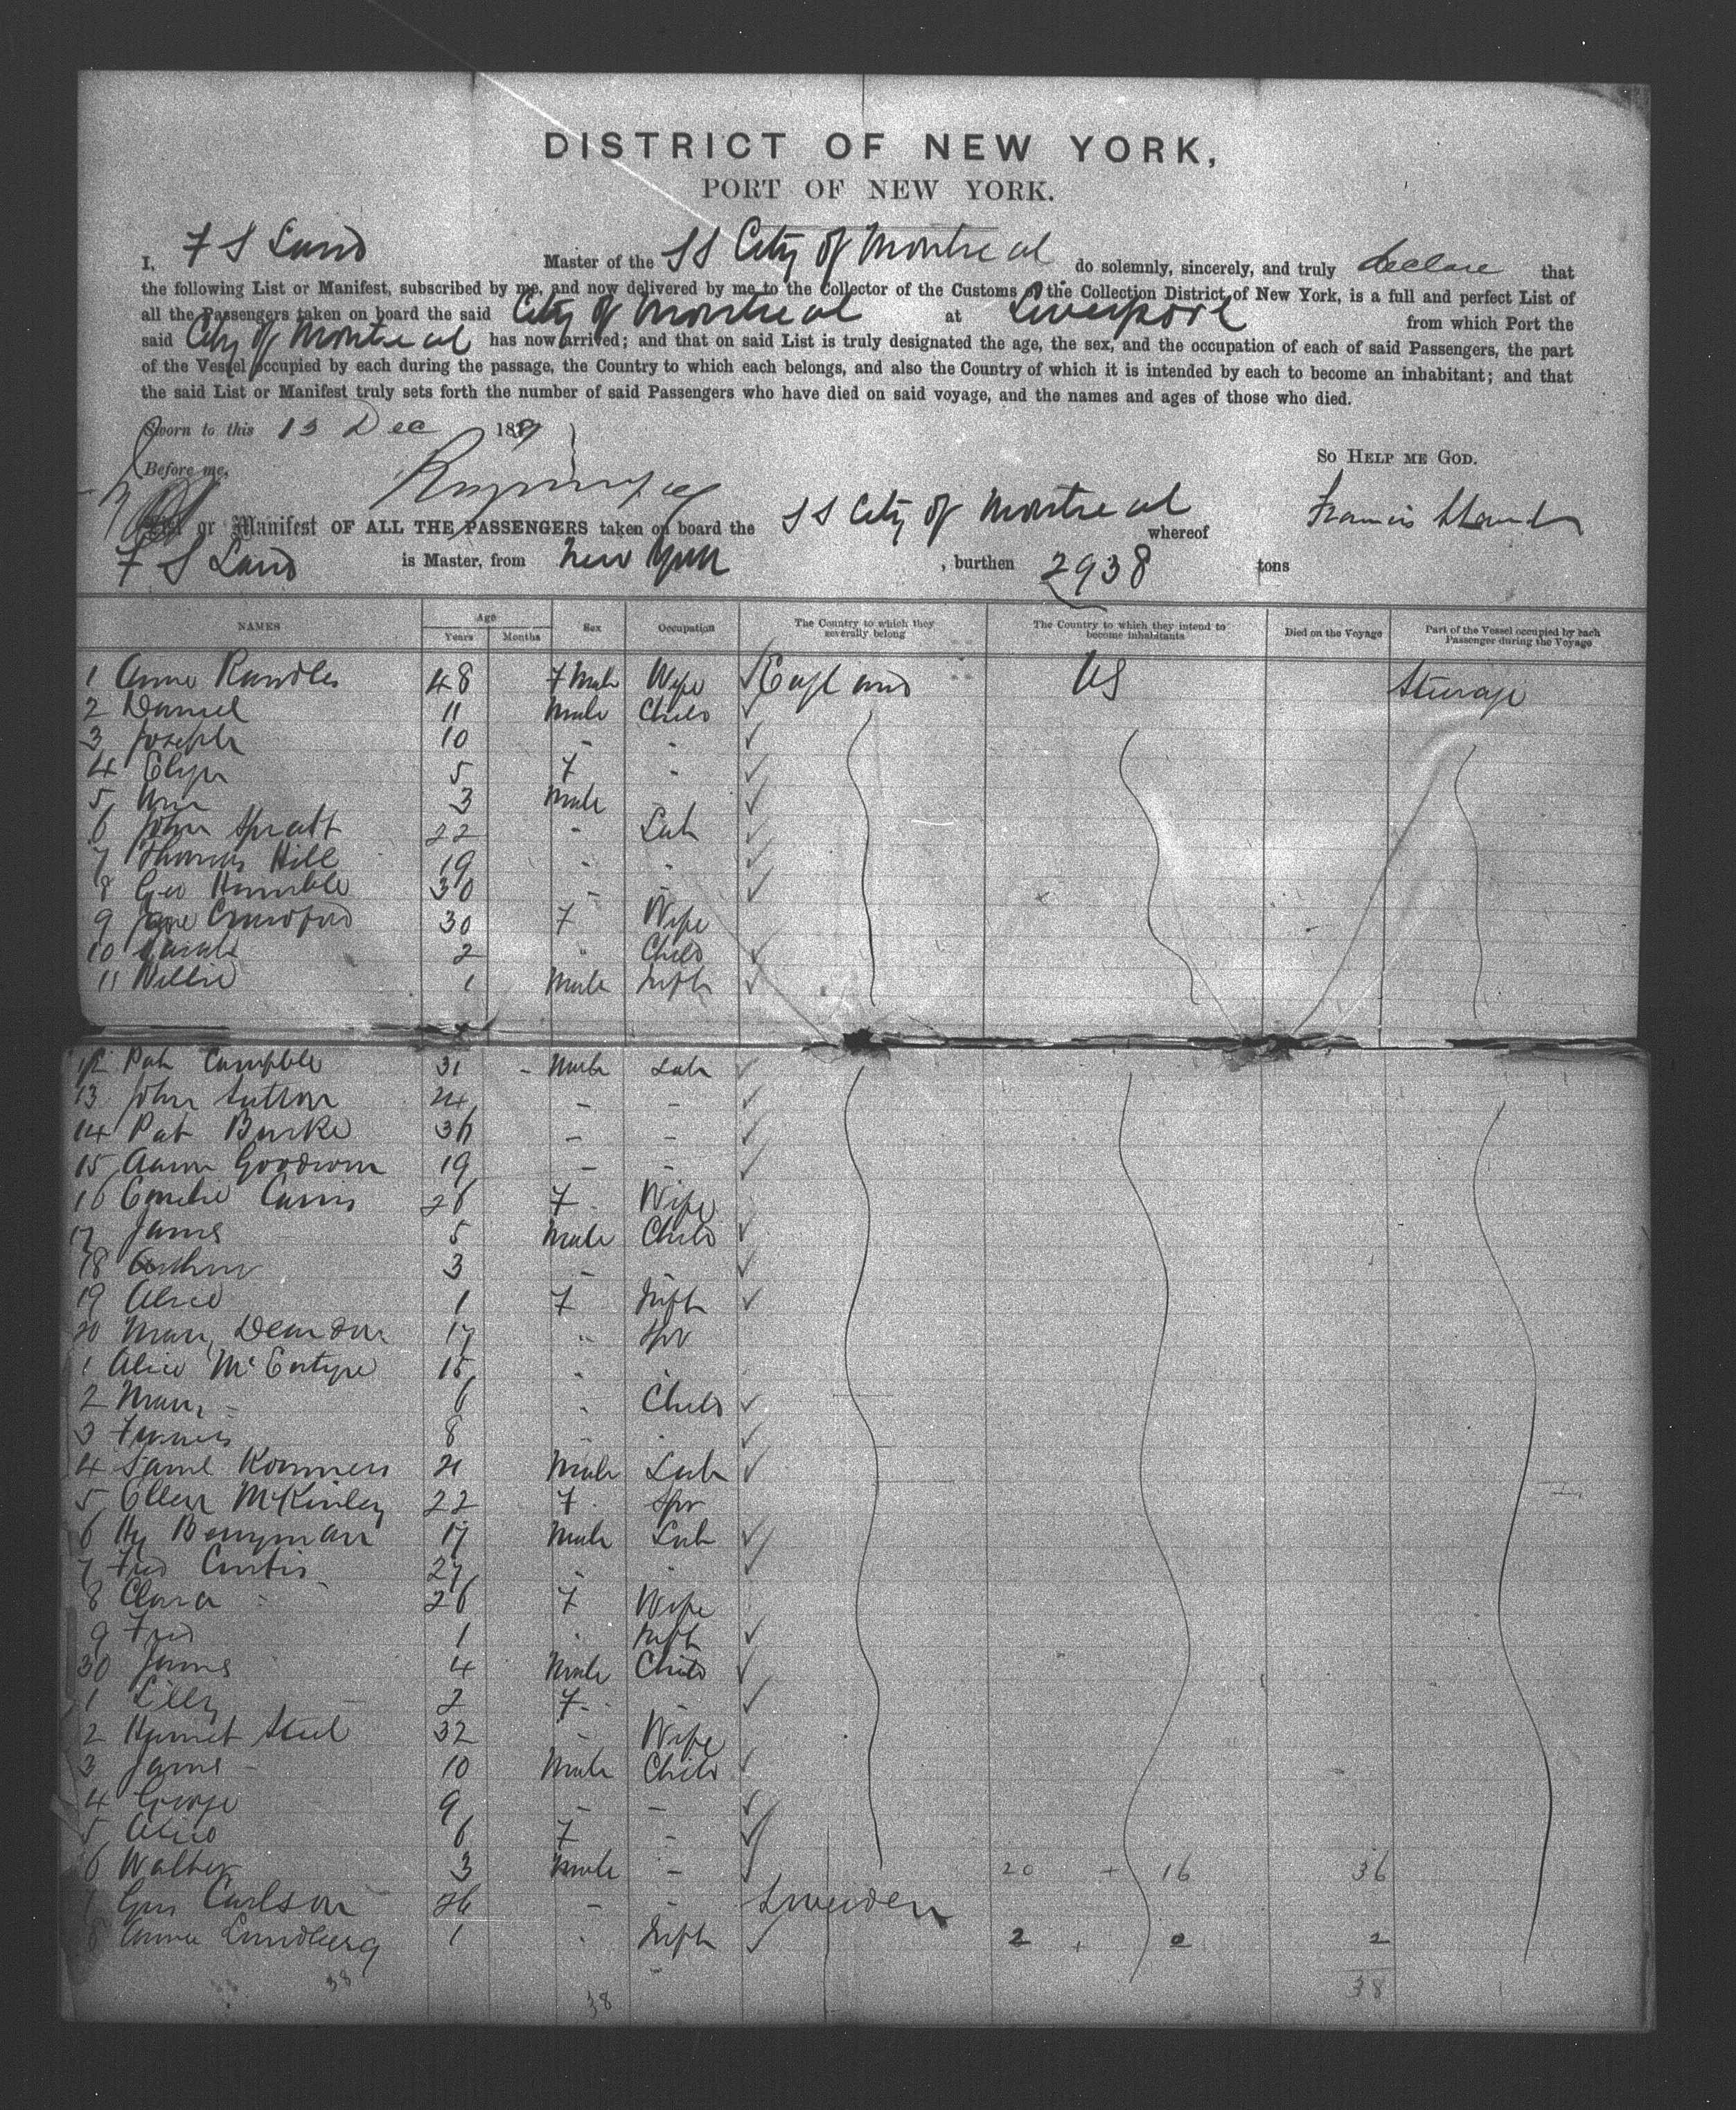 DISTRICT OF NEW YORK,
PORT OF NEW YORK.
I, F S Land Master of the SS City of Montreal do solemnly, sincerely, and truly declare that
the following List or Manifest, subscribed by me, and now delivered by me to the Collector of the Customs of the Collection District of New York, is a full and perfect List of
all the Passengers taken on board the said City of Montreal at Liverpool from which Port the
said City of Montreal has now arrived; and that on said List is truly designated the age, the sex, and the occupation of each of said Passengers, the part
of the Vessel occupied by each during the passage, the Country to which each belongs, and also the Country of which it is intended by each to become an inhabitant; and that
the said List or Manifest truly sets forth the number of said Passengers who have died on said voyage, and the names and ages of those who died.
Sworn to this 13 Dec 18
So HELP ME GOD.
Before me,
Francis S Land
List or Manifest OF ALL THE PASSENGERS taken on board the SS City of Montreal whereof
F S Land is Master, from New York, burthen 2938 tons
NAMES Age Years Months Sex Occupation The Country to which they severally belong The Country to which they intend to become inhabitants Died on the Voyage Part of the Vessel occupied by each Passenger during the Voyage
1 Anne Randles 48 F Male Wife England US Steerage
2 Daniel 11 Male Child
3 Joseph 10 - -
4 Eliza 5 F -
5 Wm 3 Male
6 John Spratt 22 " Lab
7 Thomas Hill 19 " "
8 Geo Humble 30 - -
9 Jane Crawford 30 F Wife
10 Sarah 2 " Child
11 Willie 1 Male Inft
12 Pat Campble 31 - Male Lab
13 John Sutton 24 - -
14 Pat Burke 36 - -
15 Aaron Goodwin 19 - -
16 Emelie 26 F Wife
17 James 5 Male Child
18 Arthur 3 -
19 Alice 1 F Inft
20 Mary Deardon 17 " Spr
1 Alice McEntype 15 "
2 Mary - 6 " Child
3 Frances 8 -
4 Saml 21 Male Lab
5 Ellen McKinley 22 F Spr
6 Hy Berryman 17 Male Lab
7 Fred Curtis 27 - -
8 Clara " 26 F Wife
9 Fred 1 " Inft
30 James 4 Male Child
1 Lilly 2 F - -
2 Harriet Steel 32 - Wife
3 James - 10 Male Child
4 George 9 - -
5 Alice 6 F -
6 Walter 3 Male - 20 + 16 36
7 Gus Carlson 26 - - Sweeden
8 Anna Lundberg 1 " Inft 2 + 0 2
38 38 38